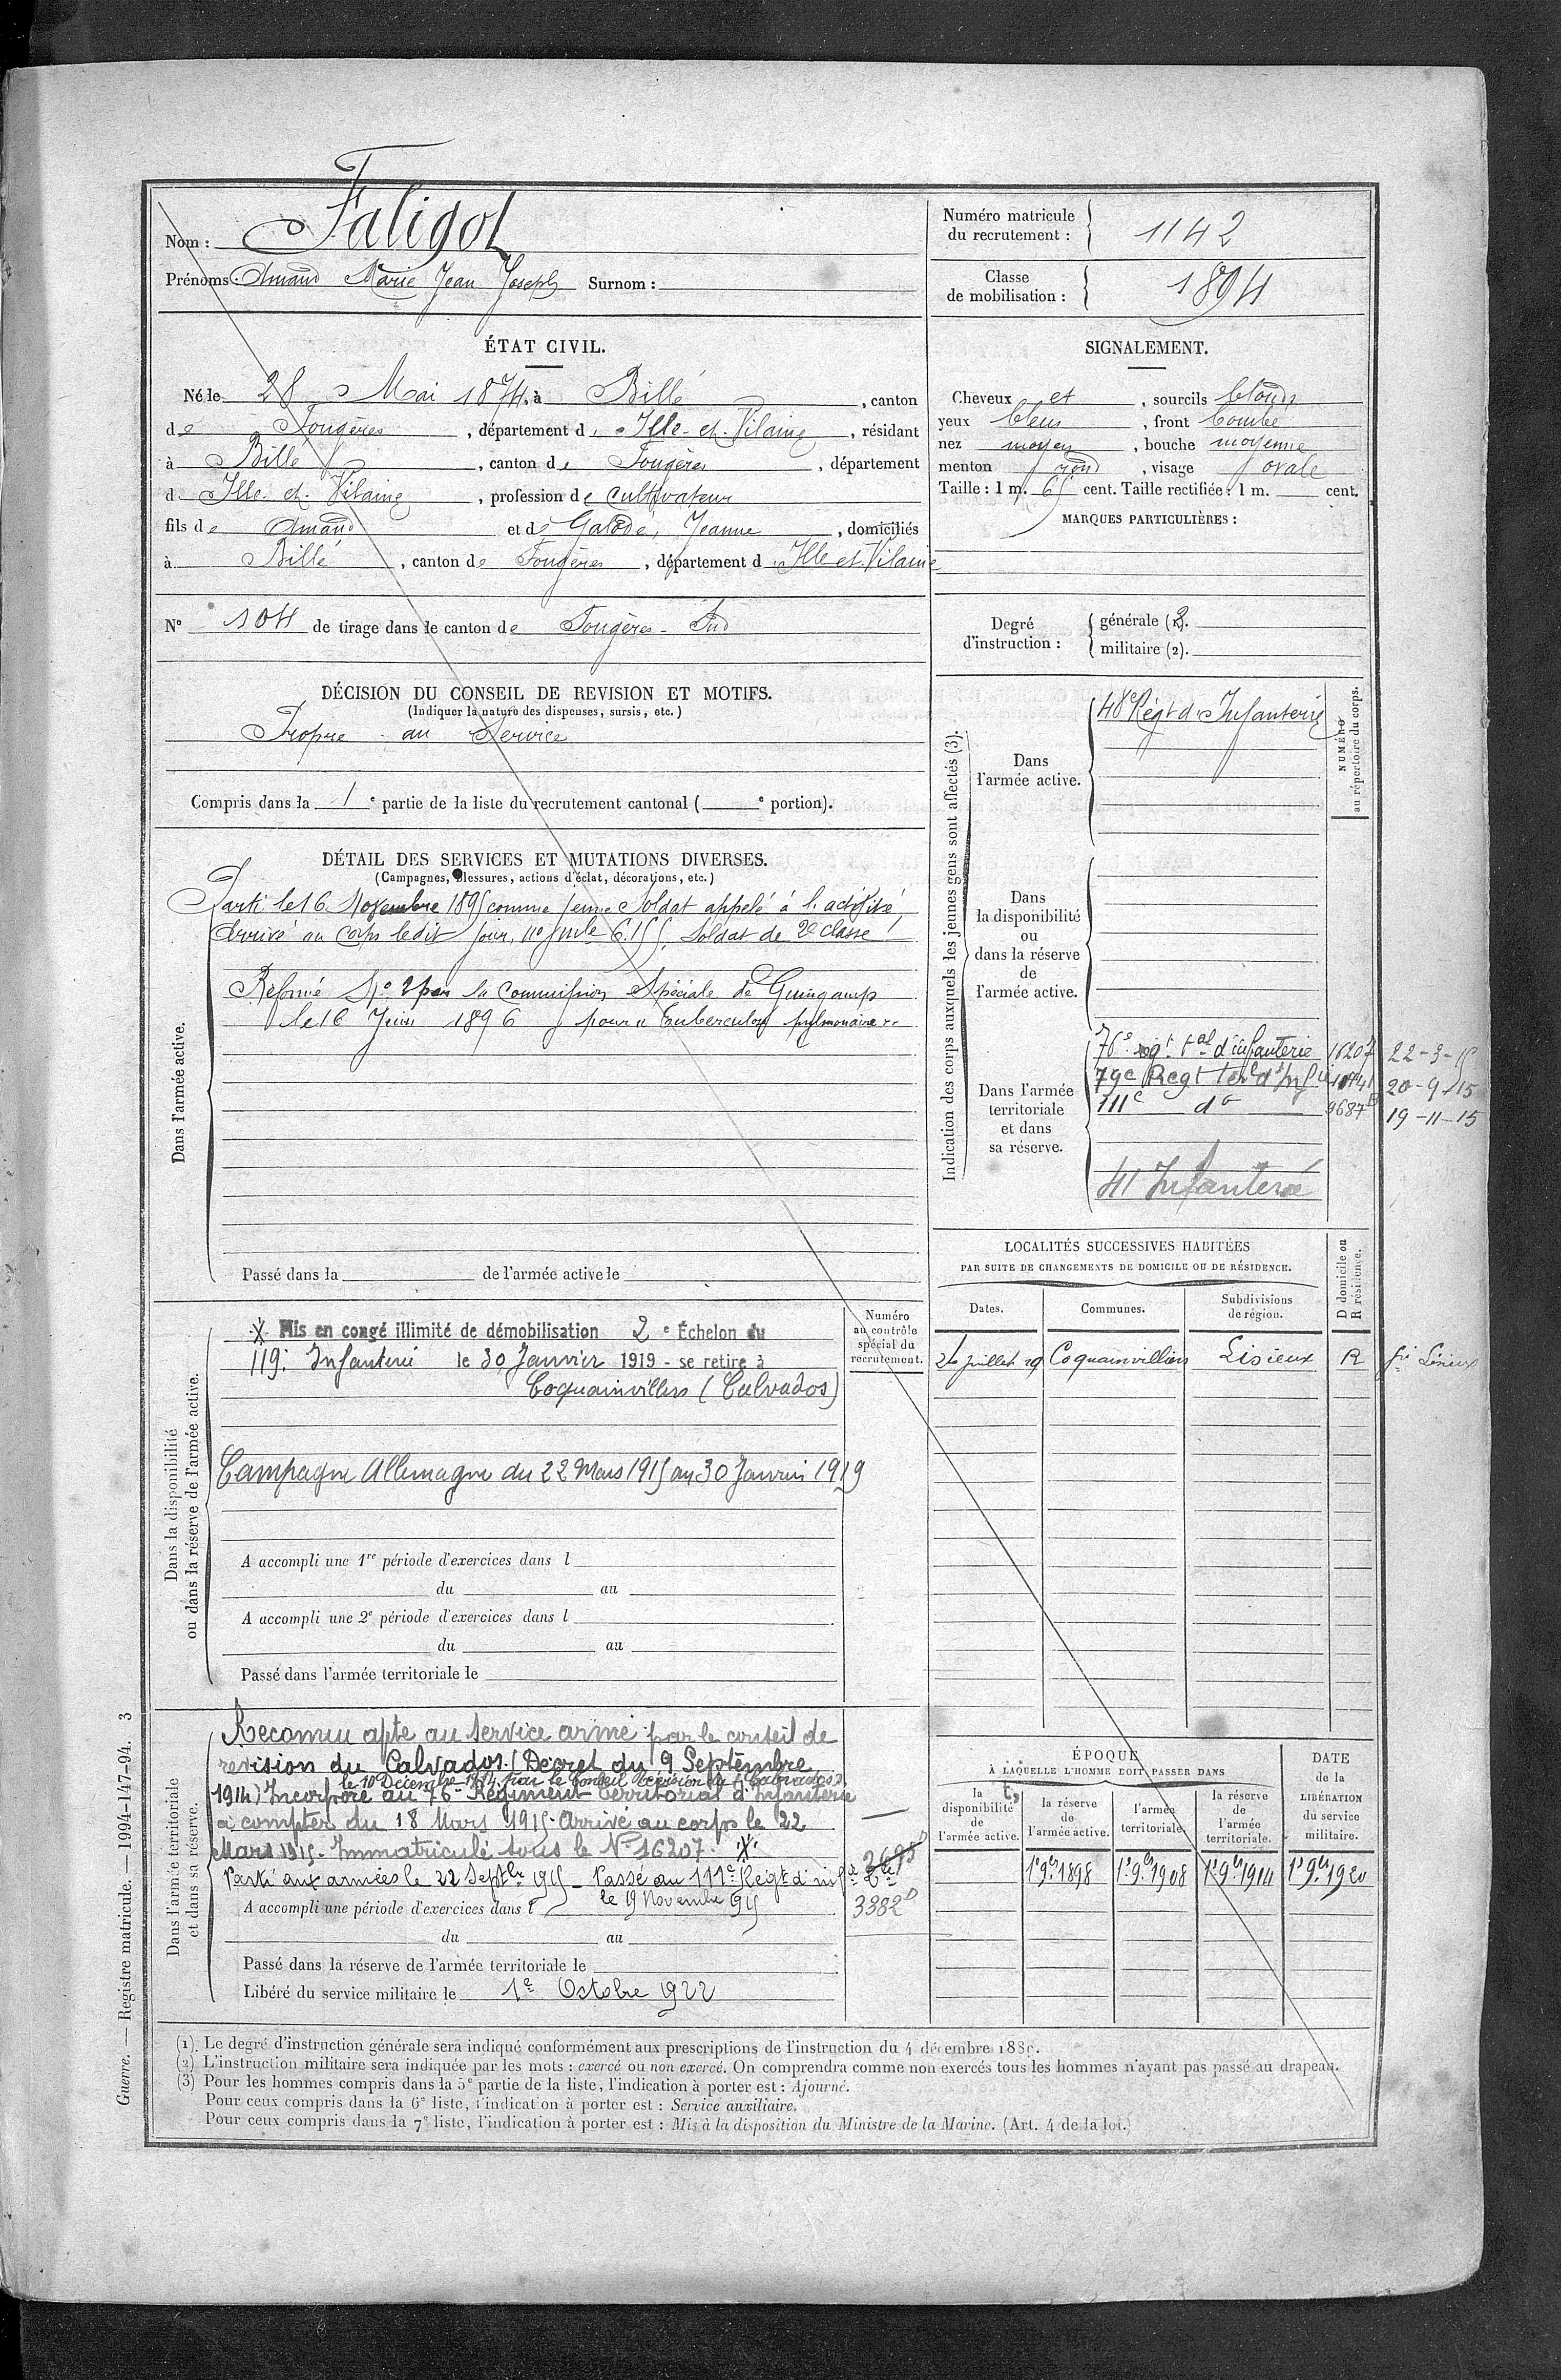 Nom : Faligot
Prénoms : Amand Marie Jean Joseph Surnom :
Numéro matricule du recrutement : 1142
Classe de mobilisation : 1894
ÉTAT CIVIL.
Né le 28 Mai 1874, à Billé, canton
de Fougères, département d'Ille-et-Vilaine, résidant
à Billé, canton de Fougères, département
d'Ille-et-Vilaine, profession de cultivateur
fils de Amand et de Galodé, Jeanne, domiciliés
à Billé, canton de Fougères, département d'Ille et Vilaine
N° 104 de tirage dans le canton de Fougères-Sud
SIGNALEMENT.
Cheveux et, sourcils blonds
yeux bleus, front bombé
nez moyen, bouche moyenne
menton rond, visage ovale
Taille : 1 m. 65 cent. Taille rectifiée : 1 m. cent.
MARQUES PARTICULIÈRES :
Degré d'instruction : générale (1). 2
militaire (2).
DÉCISION DU CONSEIL DE REVISION ET MOTIFS.
(Indiquer la nature des dispenses, sursis, etc.)
Propre au Service
Compris dans la 1e partie de la liste du recrutement cantonal ( e portion).
DÉTAIL DES SERVICES ET MUTATIONS DIVERSES.
(Campagnes, blessures, actions d'éclat, décorations, etc.)
Dans l'armée active.
Parti le 16 Novembre 1895 comme jeune Soldat appelé à l'activité,
Arrivé au Corps ledit jour, no mle 6.155, Soldat de 2e classe
Réformé No 2 par la Commission Spéciale de Guingamp
le 16 Juin 1896 pour " tuberculose pulmonaire "
Passé dans la de l'armée active le
Indication des corps auxquels les jeunes gens sont affectés (3).
NUMÉRO au répertoire du corps.
Dans l'armée active.
48e Régt d'Infanterie
Dans la disponibilité ou dans la réserve de l'armée active.
Dans l'armée territoriale et dans sa réserve.
76e regt tal d'infanterie 16207 22-3-15
79e Regt terl d'Infie 20-9-15
111e do 9687 19-11-15
41 Infanterie
LOCALITÉS SUCCESSIVES HABITÉES
PAR SUITE DE CHANGEMENTS DE DOMICILE OU DE RÉSIDENCE.
Dates. Communes. Subdivisions de région. D domicile ou R résidence.
juillet 19 Coquainvilliers Lisieux R Lisieux
Dans la disponibilité ou dans la réserve de l'armée active.
Numéro au contrôle spécial du recrutement.
X Mis en congé illimité de démobilisation 2e Échelon du
119e Infanterie le 30 Janvier 1919 - se retire à
Coquainvillers (Calvados)
Campagne Allemagne du 22 Mars 1915 au 30 Janvier 1919
A accompli une 1re période d'exercices dans l
du au
A accompli une 2e période d'exercices dans l
du au
Passé dans l'armée territoriale le
Dans l'armée territoriale et dans sa réserve.
Reconnu apte au service armé par le conseil de
revision du Calvados. (Décret du 9 Septembre
le 10 Décembre 1914 par le Conseil Révision du Calvados
1914) Incorporé au 76e Régiment territorial d'Infanterie
à compter du 18 Mars 1915. Arrivé au corps le 22
Mars 1915. Immatriculé sous le No 16207. X
Parti aux armées le 22 Septbre 1915 - Passé au 111e Régt d'infie tle
le 19 Novembre 1915
3382
A accompli une période d'exercices dans l
du au
Passé dans la réserve de l'armée territoriale le
Libéré du service militaire le 1er Octobre 1922
ÉPOQUE
À LAQUELLE L'HOMME DOIT PASSER DANS
la disponibilité de l'armée active.
la réserve de l'armée active.
l'armée territoriale.
la réserve de l'armée territoriale.
DATE de la LIBÉRATION du service militaire.
1er 9bre 1898 1er 9bre 1908 1er 9bre 1914 1er 9bre 1920
(1). Le degré d'instruction générale sera indiqué conformément aux prescriptions de l'instruction du 4 décembre 1889.
(2) L'instruction militaire sera indiquée par les mots : exercé ou non exercé. On comprendra comme non exercés tous les hommes n'ayant pas passé au drapeau.
(3) Pour les hommes compris dans la 5e partie de la liste, l'indication à porter est : Ajourné.
Pour ceux compris dans la 6e liste, l'indication à porter est : Service auxiliaire.
Pour ceux compris dans la 7e liste, l'indication à porter est : Mis à la disposition du Ministre de la Marine. (Art. 4 de la loi.)
Guerre. — Registre matricule. — 1994-147-94. 3